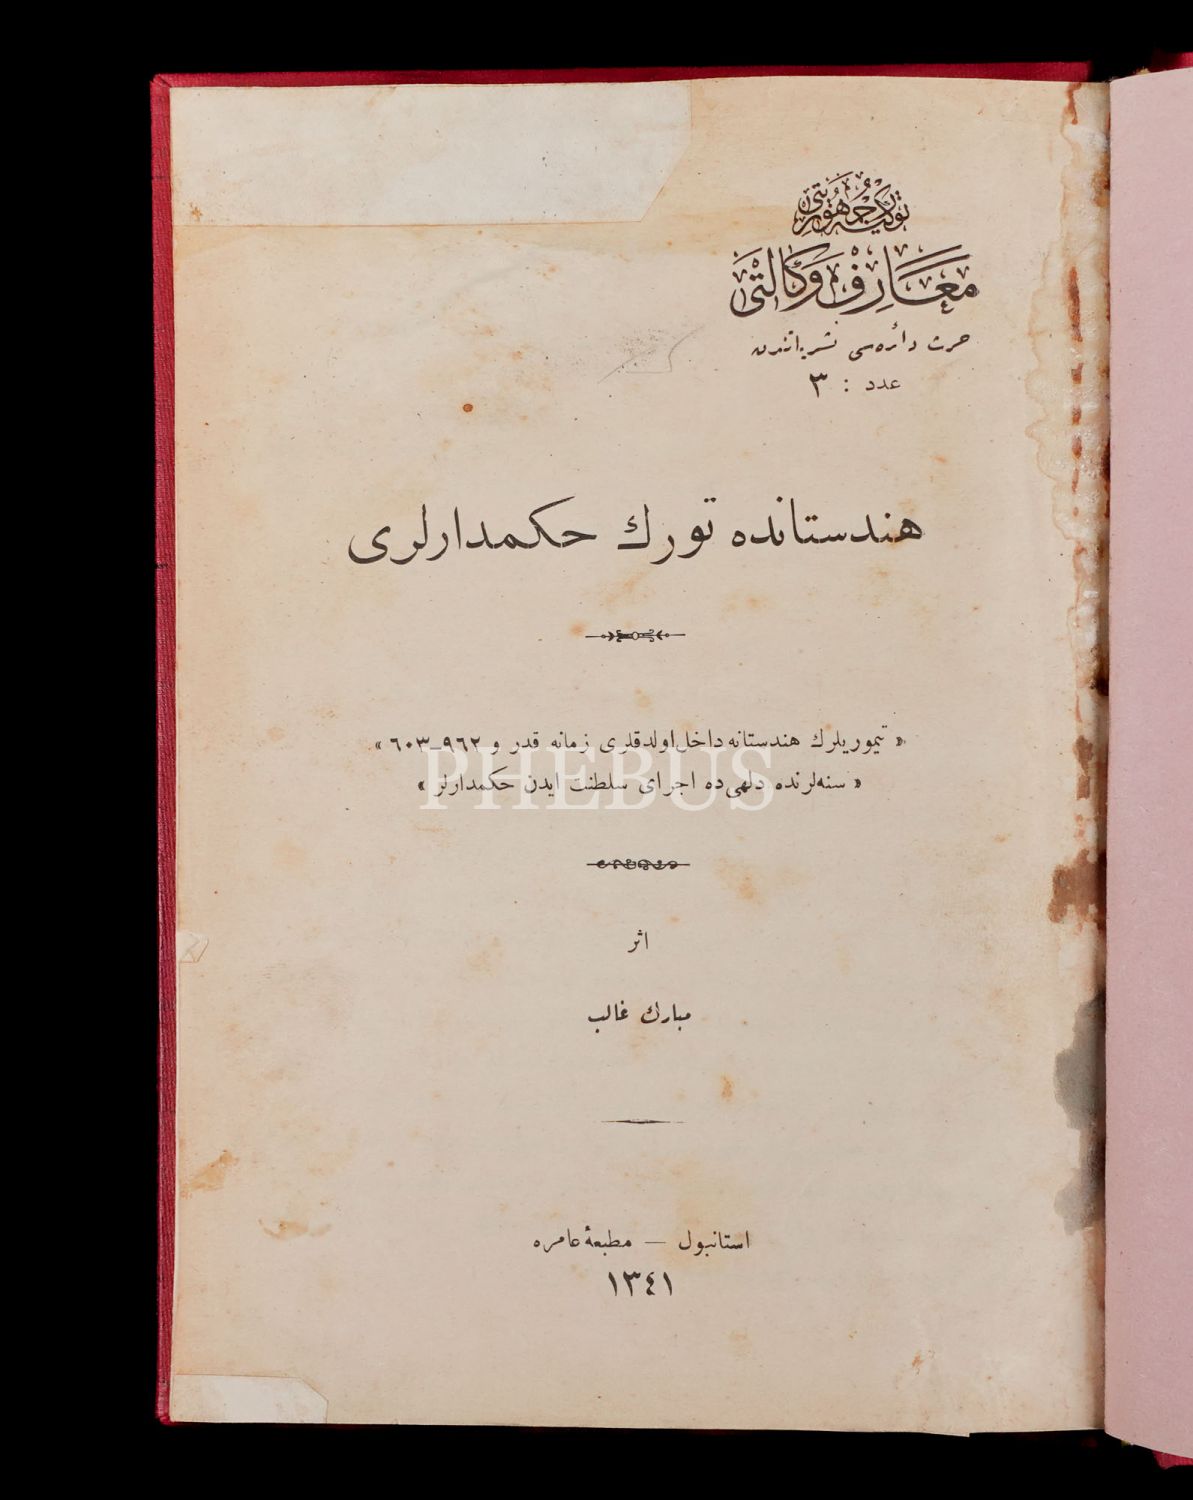 توركيه جمهوريتى
معارف وكالتى
حرث دائره‌سى نشرياتندن
عدد : ٣
هندستانده تورك حكمدارلرى
« تيموريلرك هندستانه داخل اولدقلرى زمانه قدر و ٩٦٢ــ٦٠٣ »
« سنه‌لرنده دلهى‌ده اجراى سلطنت ايدن حكمدارلر »
PHEBUS
اثر
مبارك غالب
استانبول — مطبعهٔ عامره
١٣٤١